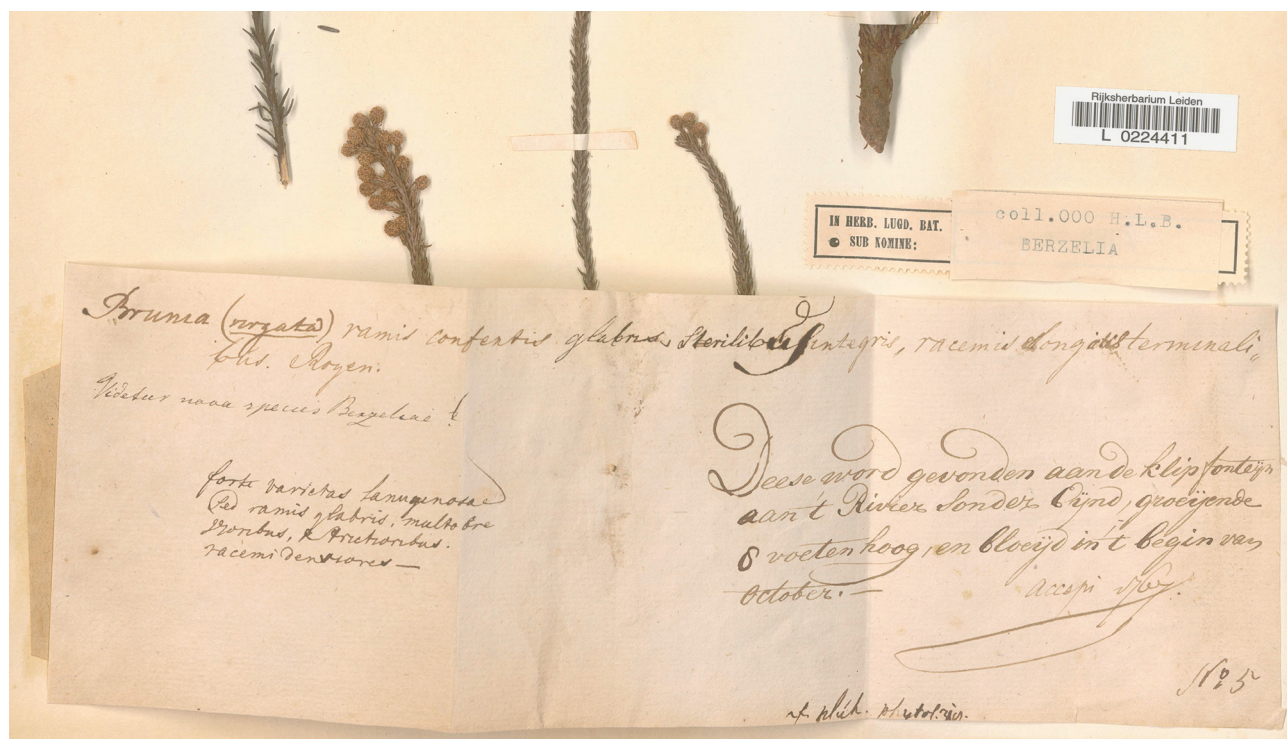 Rijksherbarium Leiden
L 0224411
IN HERB. LUGD. BAT.
SUB NOMINE:
coll.000 H.L.B.
BERZELIA
Brunia (virgata) ramis confertis glabris, sterilibus integris, racemis longis terminali
bus. Royen.
Videtur nova species Berzeliae!
forte varietas lanuginosae
sed ramis glabris, multo bre
vioribus, & strictioribus.
racemi densiores —
Deese word gevonden aan de klip fonteijn
aan't Rivier Sonder Eijnd, groeijende
8 voeten hoog, en bloeijd in't begin van
October. —
accepi 1767.
No. 5
cf. pluk. phytol.